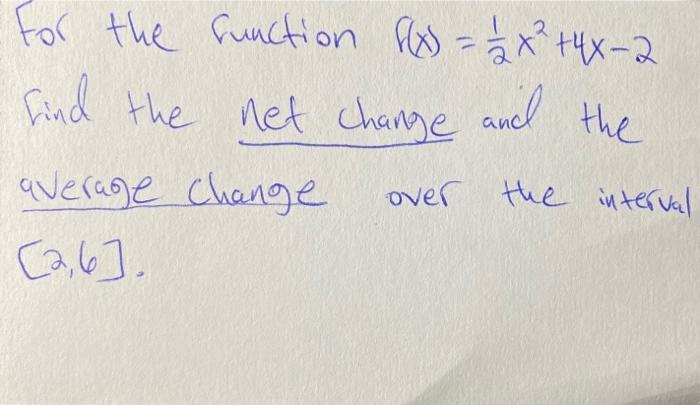 For the function f(x) = 1/2 x² + 4x - 2
find the net change and the
average change over the interval
[2,6].